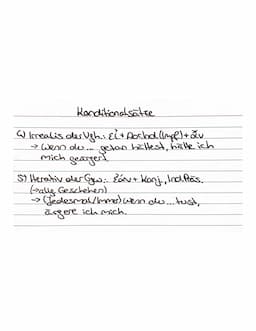 Konditionalsätze
4) Irrealis der Vgh.: εἰ + Aorind. (Impf.) + ἄν
→ Wenn du... getan hättest, hätte ich
mich geärgert.
5) Iterativ der Ggw.: ἐάν + Konj., Ind. Präs.
(→ allg. Geschehen)
→ (Jedesmal/Immer) wenn du ... tust,
ärgere ich mich.